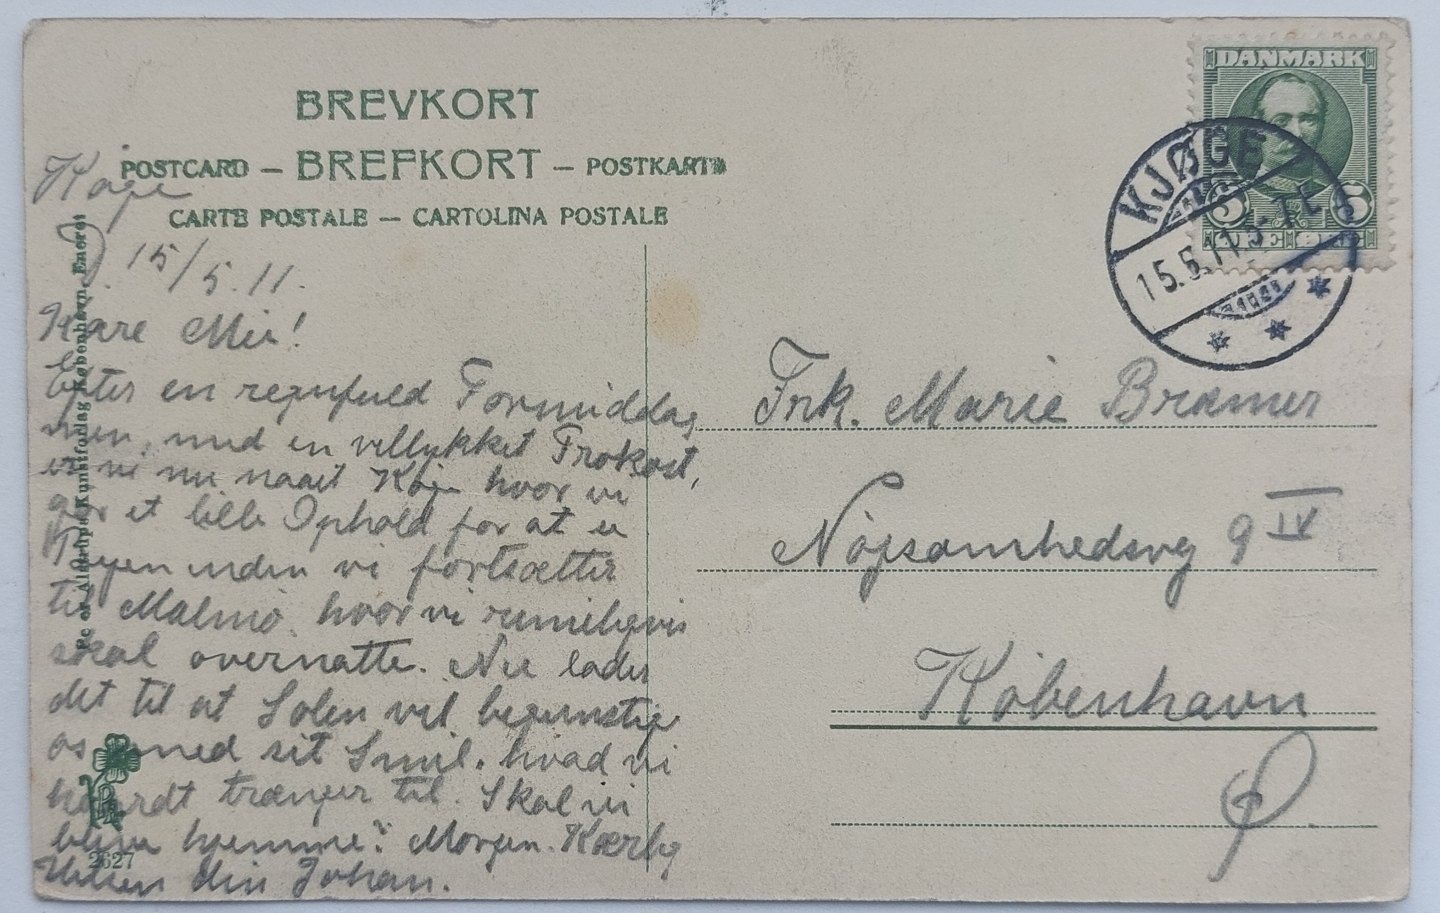 BREVKORT
POSTCARD – BREFKORT – POSTKARTE
CARTE POSTALE – CARTOLINA POSTALE
DANMARK
5 5
ØRE ØRE
KJØGE
15.5.11. 5-7 E
Køge
15/5.11.
Kære Mie!
Efter en regnfuld Formiddag
men, med en vellykket Frokost,
er vi nu naaet Køge hvor vi
gør et lille Ophold for at se
Byen inden vi fortsætter
til Malmø. hvor vi rimeligvis
skal overnatte. Nu lader
det til at Solen vil begunstige
os med sit Smil. hvad vi
haardt trænger til. Skal vi
blive hjemme i Morgen. Kærlig
Hilsen din Johan.
Frk. Marie Bræmer
Nøjsomhedsvej 9 IV
København
Ø.
Pc of Alstrups Kunstforlag København Eneret
2627